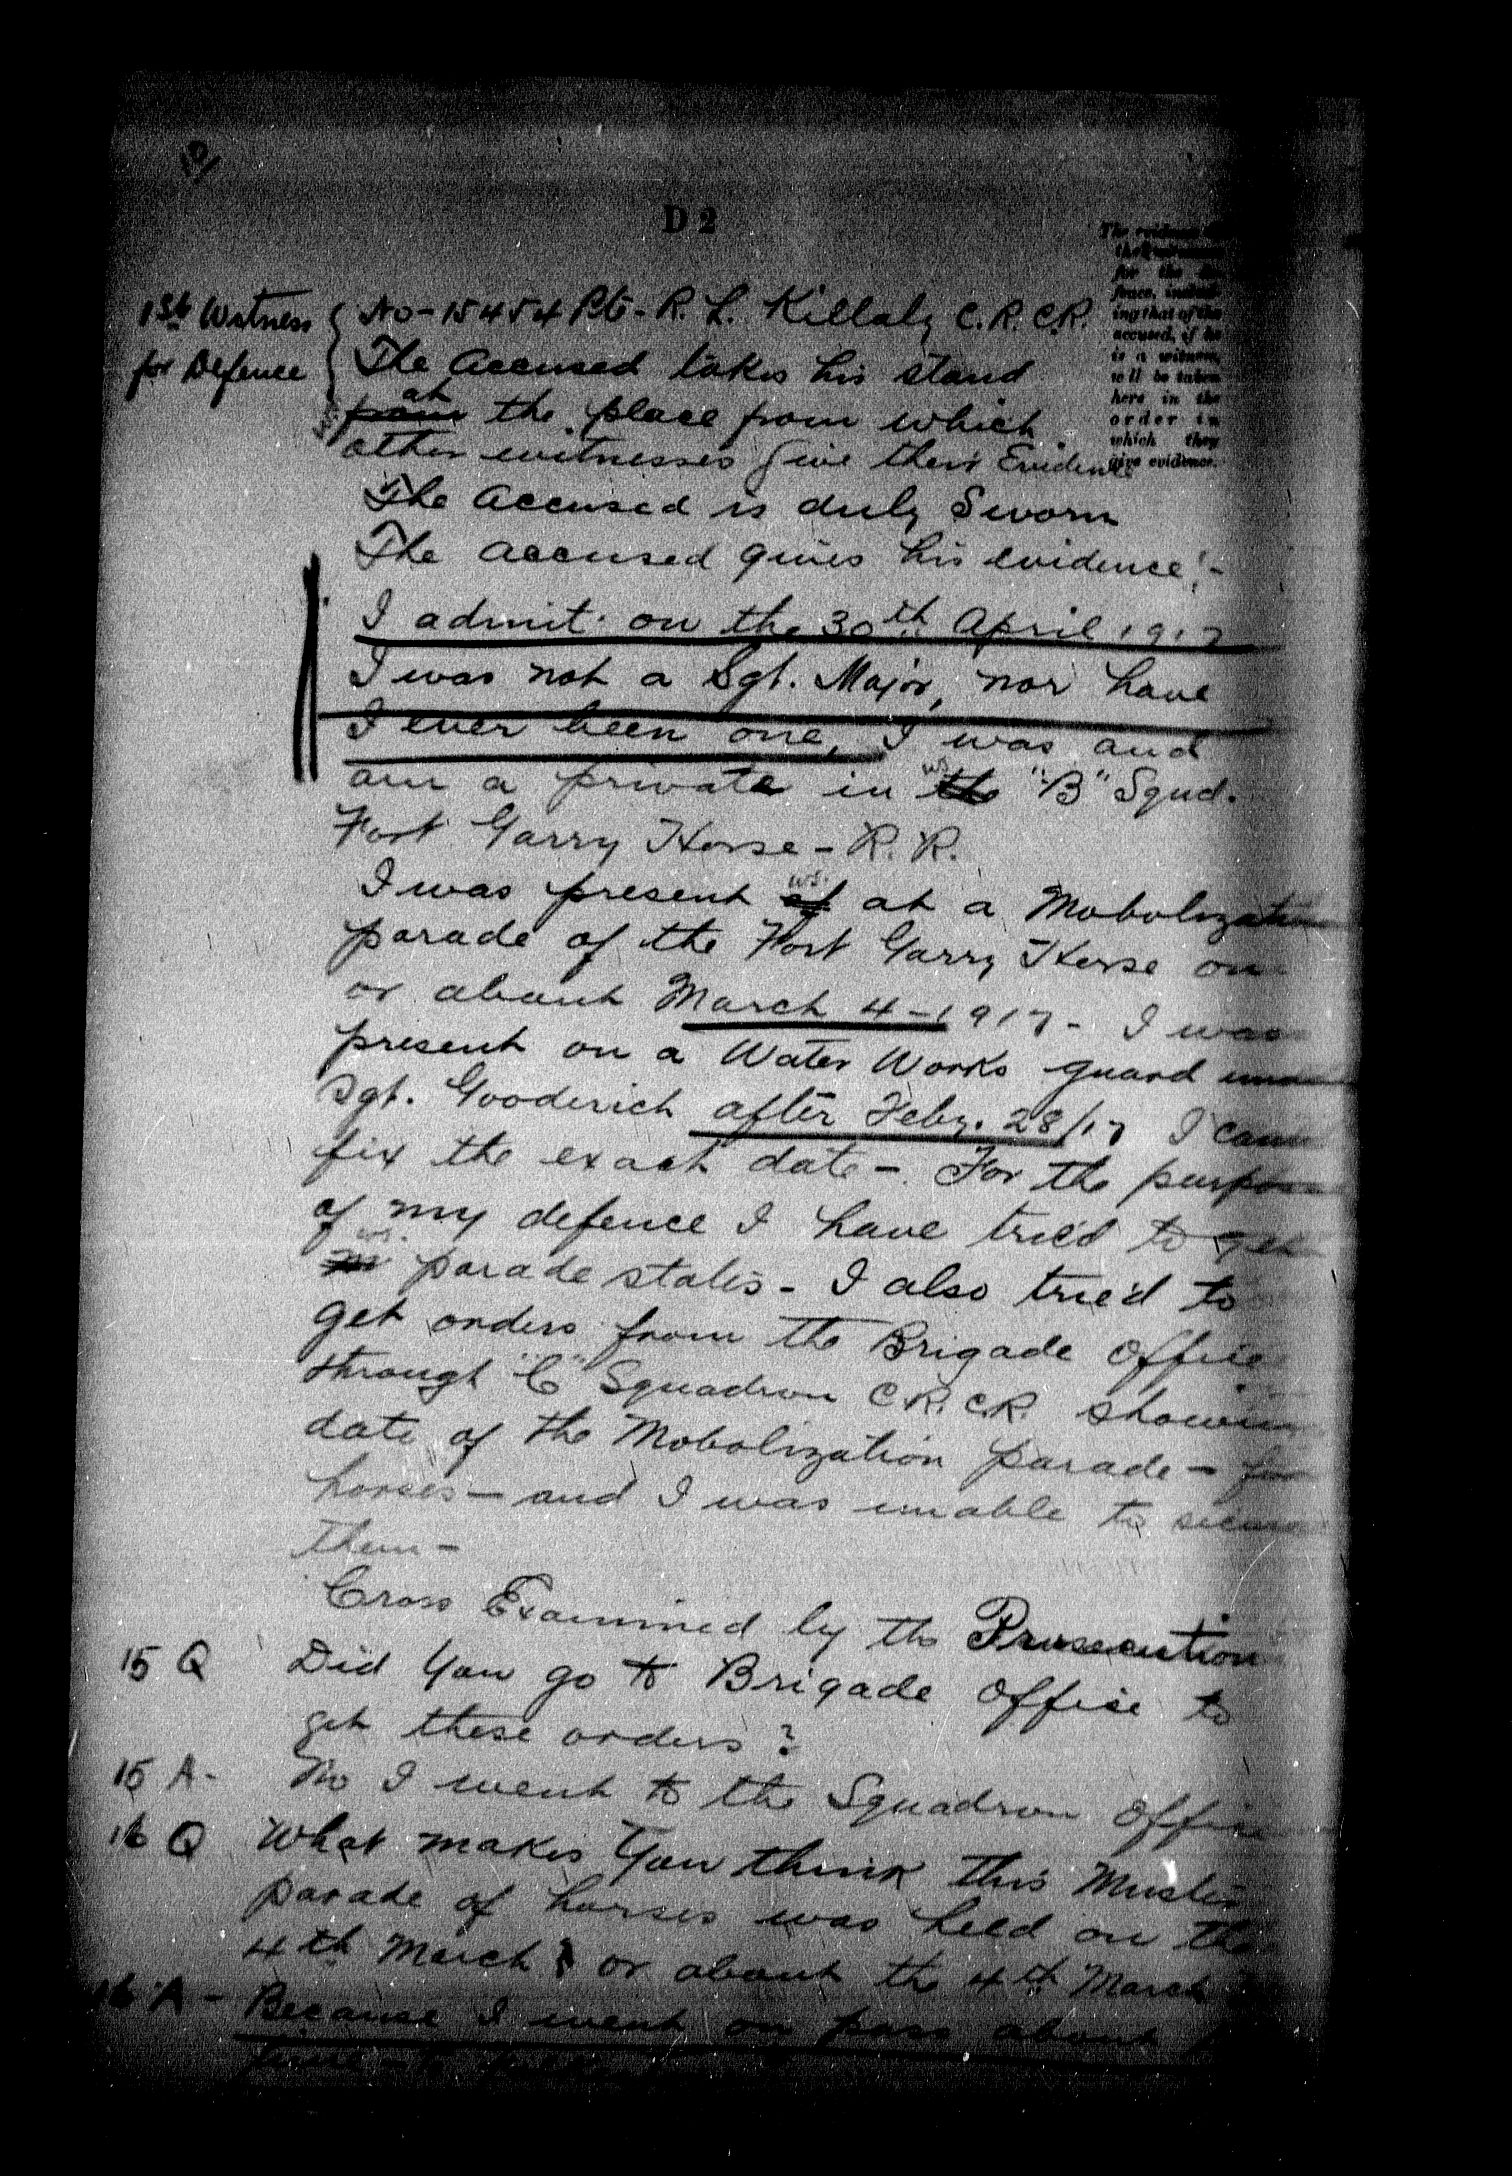 D 2
The evidence
for the
ing that of the
accused, if he
is a witness,
will be taken
here in the
order in
which they
give evidence.
1st Witness
for Defence
No - 15454 Pte. R. L. Killaly C.R.C.R.
The Accused takes his stand
at
from the place from which
other witnesses give their Evidence
The Accused is duly Sworn
The accused gives his evidence:-
I admit on the 30th April 1917
I was not a Sgt. Major, nor have
I ever been one, I was and
am a private in the "B" Squd.
Fort Garry Horse - R. R.
I was present of at a Mobolization
parade of the Fort Garry Horse on
or about March 4 - 1917 - I was
present on a Water Works guard
Sgt. Gooderich after Feby. 28/17 I
fix the exact date - For the purpose
of my defence I have tried to get
parade states - I also tried to
get orders from the Brigade Office
through "C" Squadron C.R.C.R. showing
date of the Mobolization parade - for
horses - and I was unable to secure
them -
Cross Examined by the Prosecution
15 Q Did You go to Brigade Office to
get these orders ?
15 A - No I went to the Squadron Office
16 Q What makes You think this Muster
parade of horses was held on the
4th March or about the 4th March
16 A - Because I went on pass about